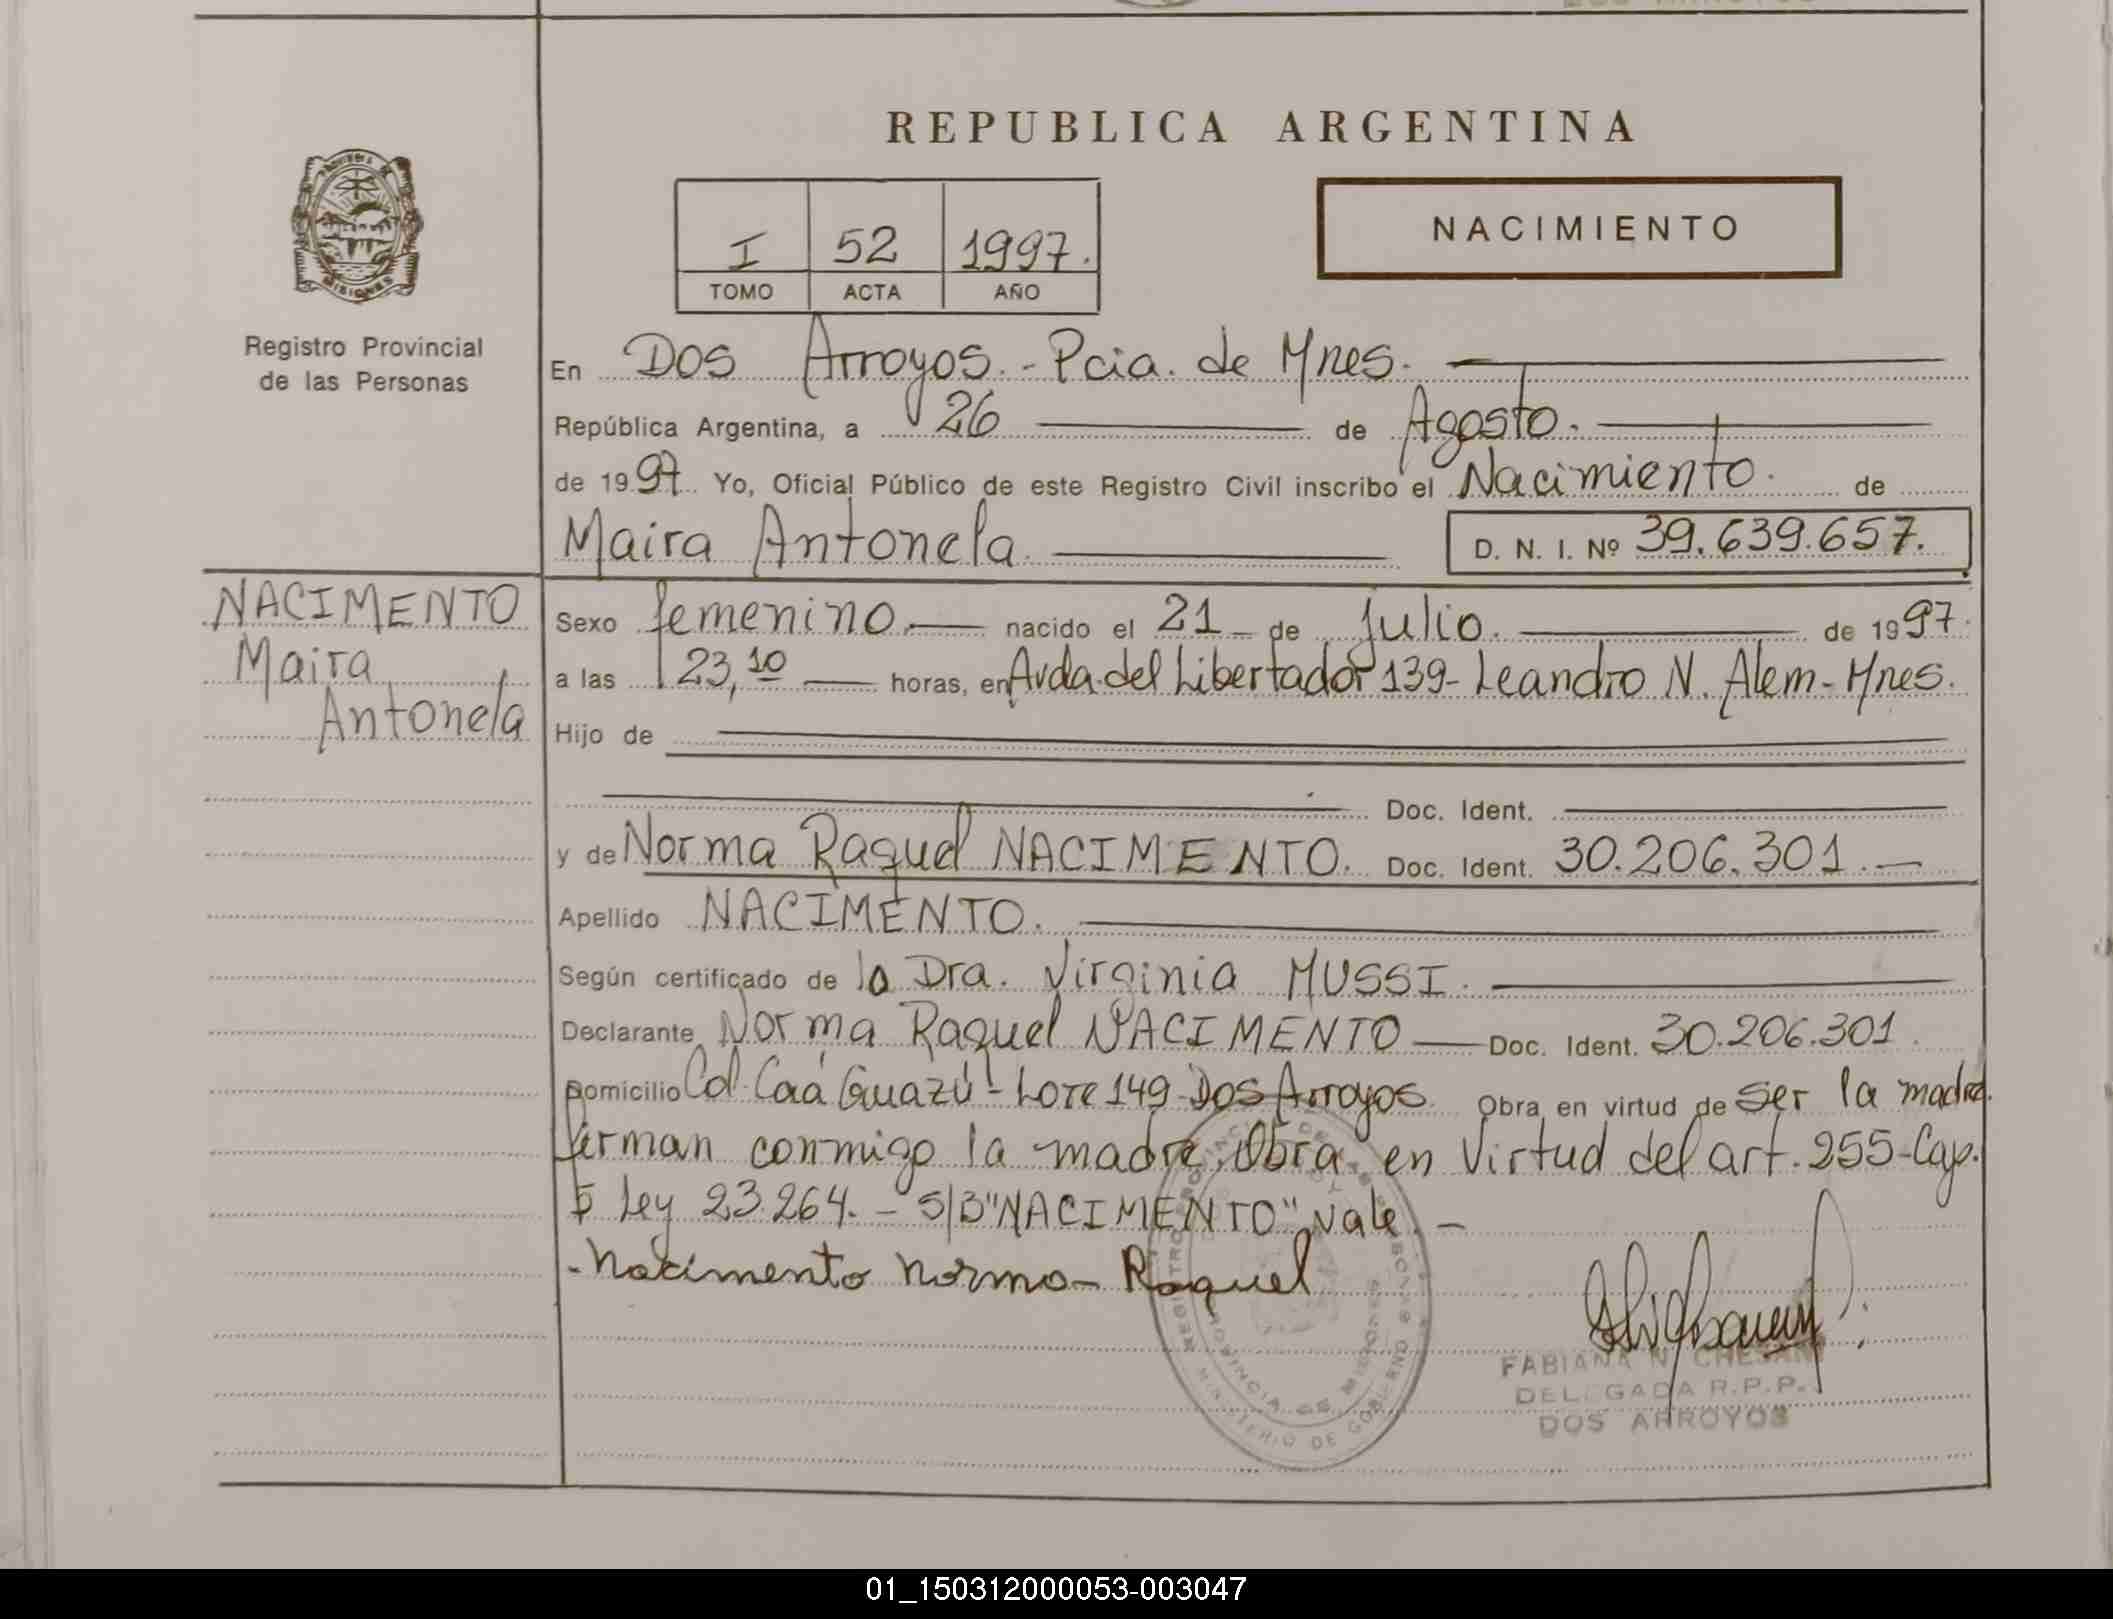 REPUBLICA ARGENTINA
NACIMIENTO
I 52 1997.
TOMO ACTA AÑO
Registro Provincial
de las Personas
En Dos Arroyos.- Pcia. de Mnes.
República Argentina, a 26 de Agosto.
de 1997. Yo, Oficial Público de este Registro Civil inscribo el Nacimiento. de
Maira Antonela. D. N. I. Nº 39.639.657.
NACIMENTO
Maira
Antonela
Sexo femenino. nacido el 21 de julio. de 1997.
a las 23,10 horas, en Avda. del Libertador 139- Leandro N. Alem- Mnes.
Hijo de
Doc. Ident.
y de Norma Raquel NACIMENTO. Doc. Ident. 30.206.301.
Apellido NACIMENTO.
Según certificado de la Dra. Virginia MUSSI.
Declarante Norma Raquel NACIMENTO Doc. Ident. 30.206.301.
Domicilio Col. Caá Guazú- Lote 149- Dos Arroyos. Obra en virtud de ser la madre.
firman conmigo la madre. Obra en Virtud del art. 255-Cap.
5 Ley 23.264. - S/B "NACIMENTO" Vale. -
- Nacimento Norma Raquel
REGISTRO PROVINCIAL DE LAS PERSONAS
PROVINCIA DE MISIONES
MINISTERIO DE GOBIERNO
FABIANA N. CHESANI
DELEGADA R.P.P.
DOS ARROYOS
01_150312000053-003047